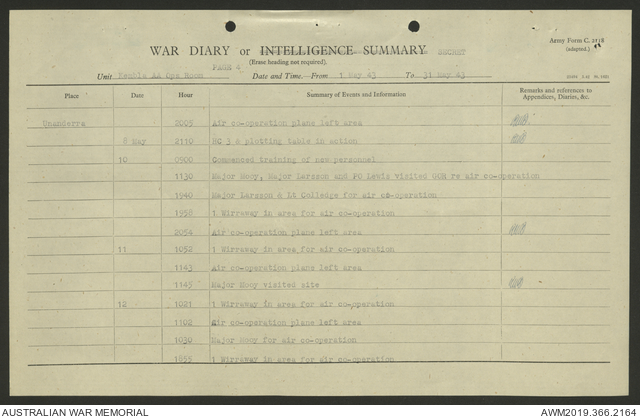 Army Form C. 2118
(adapted.)
WAR DIARY or INTELLIGENCE SUMMARY SECRET
(Erase heading not required).
PAGE 4
Unit Kembla AA Ops Room Date and Time.—From 1 May 43 To 31 May 43
Place Date Hour Summary of Events and Information Remarks and references to Appendices, Diaries, &c.
Unanderra 2005 Air co-operation plane left area
8 May 2110 HC 3 & plotting table in action
10 0900 Commenced training of new personnel
1130 Major Mooy, Major Larsson and PO Lewis visited GOR re air co-operation
1940 Major Larsson & Lt Colledge for air co-operation
1958 1 Wirraway in area for air co-operation
2054 Air co-operation plane left area
11 1052 1 Wirraway in area for air co-operation
1143 Air co-operation plane left area
1145 Major Mooy visited site
12 1021 1 Wirraway in area for air co-operation
1102 Air co-operation plane left area
1030 Major Mooy for air co-operation
1855 1 Wirraway in area for air co-operation
AUSTRALIAN WAR MEMORIAL AWM2019.366.2164